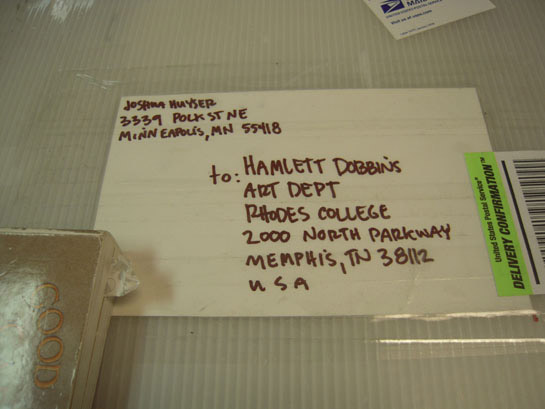 JOSHUA HUYSER
3339 POLK ST NE
MINNEAPOLIS, MN 55418
to: HAMLETT DOBBINS
ART DEPT
RHODES COLLEGE
2000 NORTH PARKWAY
MEMPHIS, TN 38112
USA
United States Postal Service
DELIVERY CONFIRMATION™
UNITED STATES POSTAL SERVICE
Visit us at usps.com